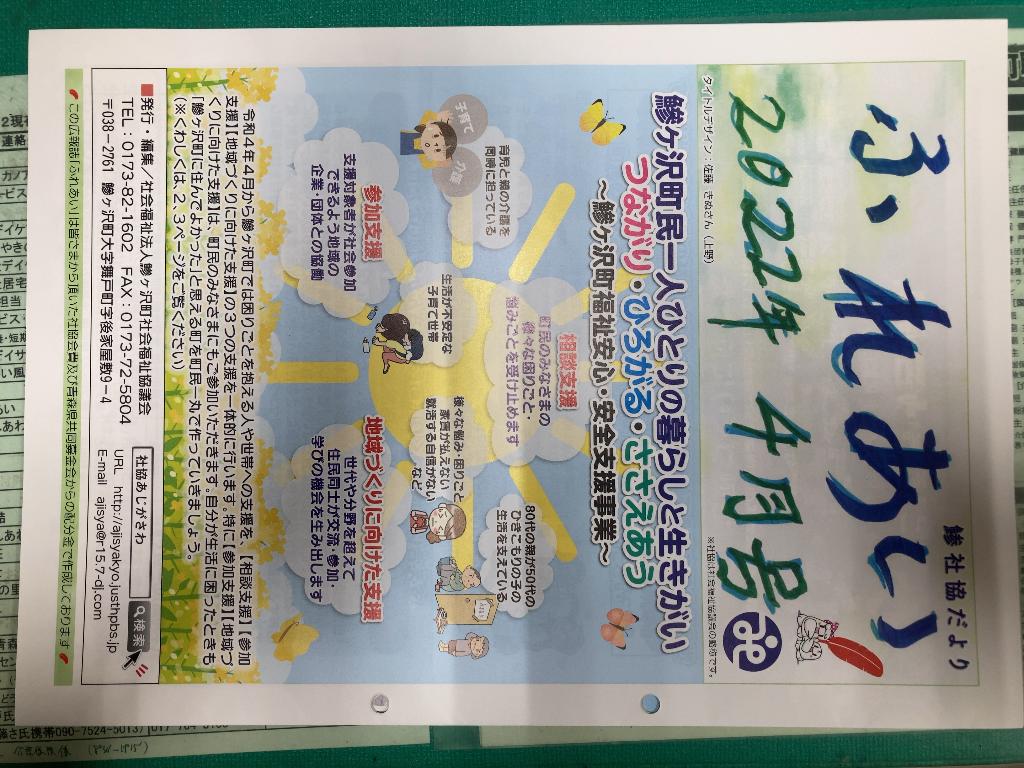 鰺社協だより
ふれあい
2022年 4月号
※社協は社会福祉協議会の略称です。
タイトルデザイン：佐藤 きぬさん（上野）
鰺ヶ沢町民一人ひとりの暮らしと生きがい
つながり・ひろがる・ささえあう
～鰺ヶ沢町福祉安心・安全支援事業～
子育て
介護
育児と親の介護を
同時に担っている
相談支援
町民のみなさまの
様々な困りごと・
悩みごとを受け止めます
80代の親が50代の
ひきこもりの子の
生活を支えている
生活が不安定な
子育て世帯
様々な悩み・困りごと
家賃が払えない
就活する自信がない
など
参加支援
支援対象者が社会参加
できるよう地域の
企業・団体との協働
地域づくりに向けた支援
世代や分野を超えて
住民同士が交流・参加・
学びの機会を生み出します
令和4年4月から鰺ヶ沢町では困りごとを抱える人や世帯への支援を、【相談支援】【参加
支援】【地域づくりに向けた支援】の3つの支援を一体的に行います。特に【参加支援】【地域づ
くりに向けた支援】は、町民のみなさまにもご参加いただきます。自分が生活に困ったときも
「鰺ヶ沢町に住んでよかった」と思える町を町民一丸で作っていきましょう。
（※くわしくは、2、3ページをご覧ください）
■発行・編集／社会福祉法人鰺ヶ沢町社会福祉協議会
TEL：0173-82-1602 FAX：0173-72-5804
〒038-2761 鰺ヶ沢町大字舞戸町字後家屋敷9-4
社協あじがさわ
検索
URL http://ajisyakyo.justhpbs.jp
E-mail ajisya@r15.7-dj.com
この広報誌「ふれあい」は皆さまから頂いた社協会費及び青森県共同募金会からの配分金で作成しております
携帯090-7524-5013